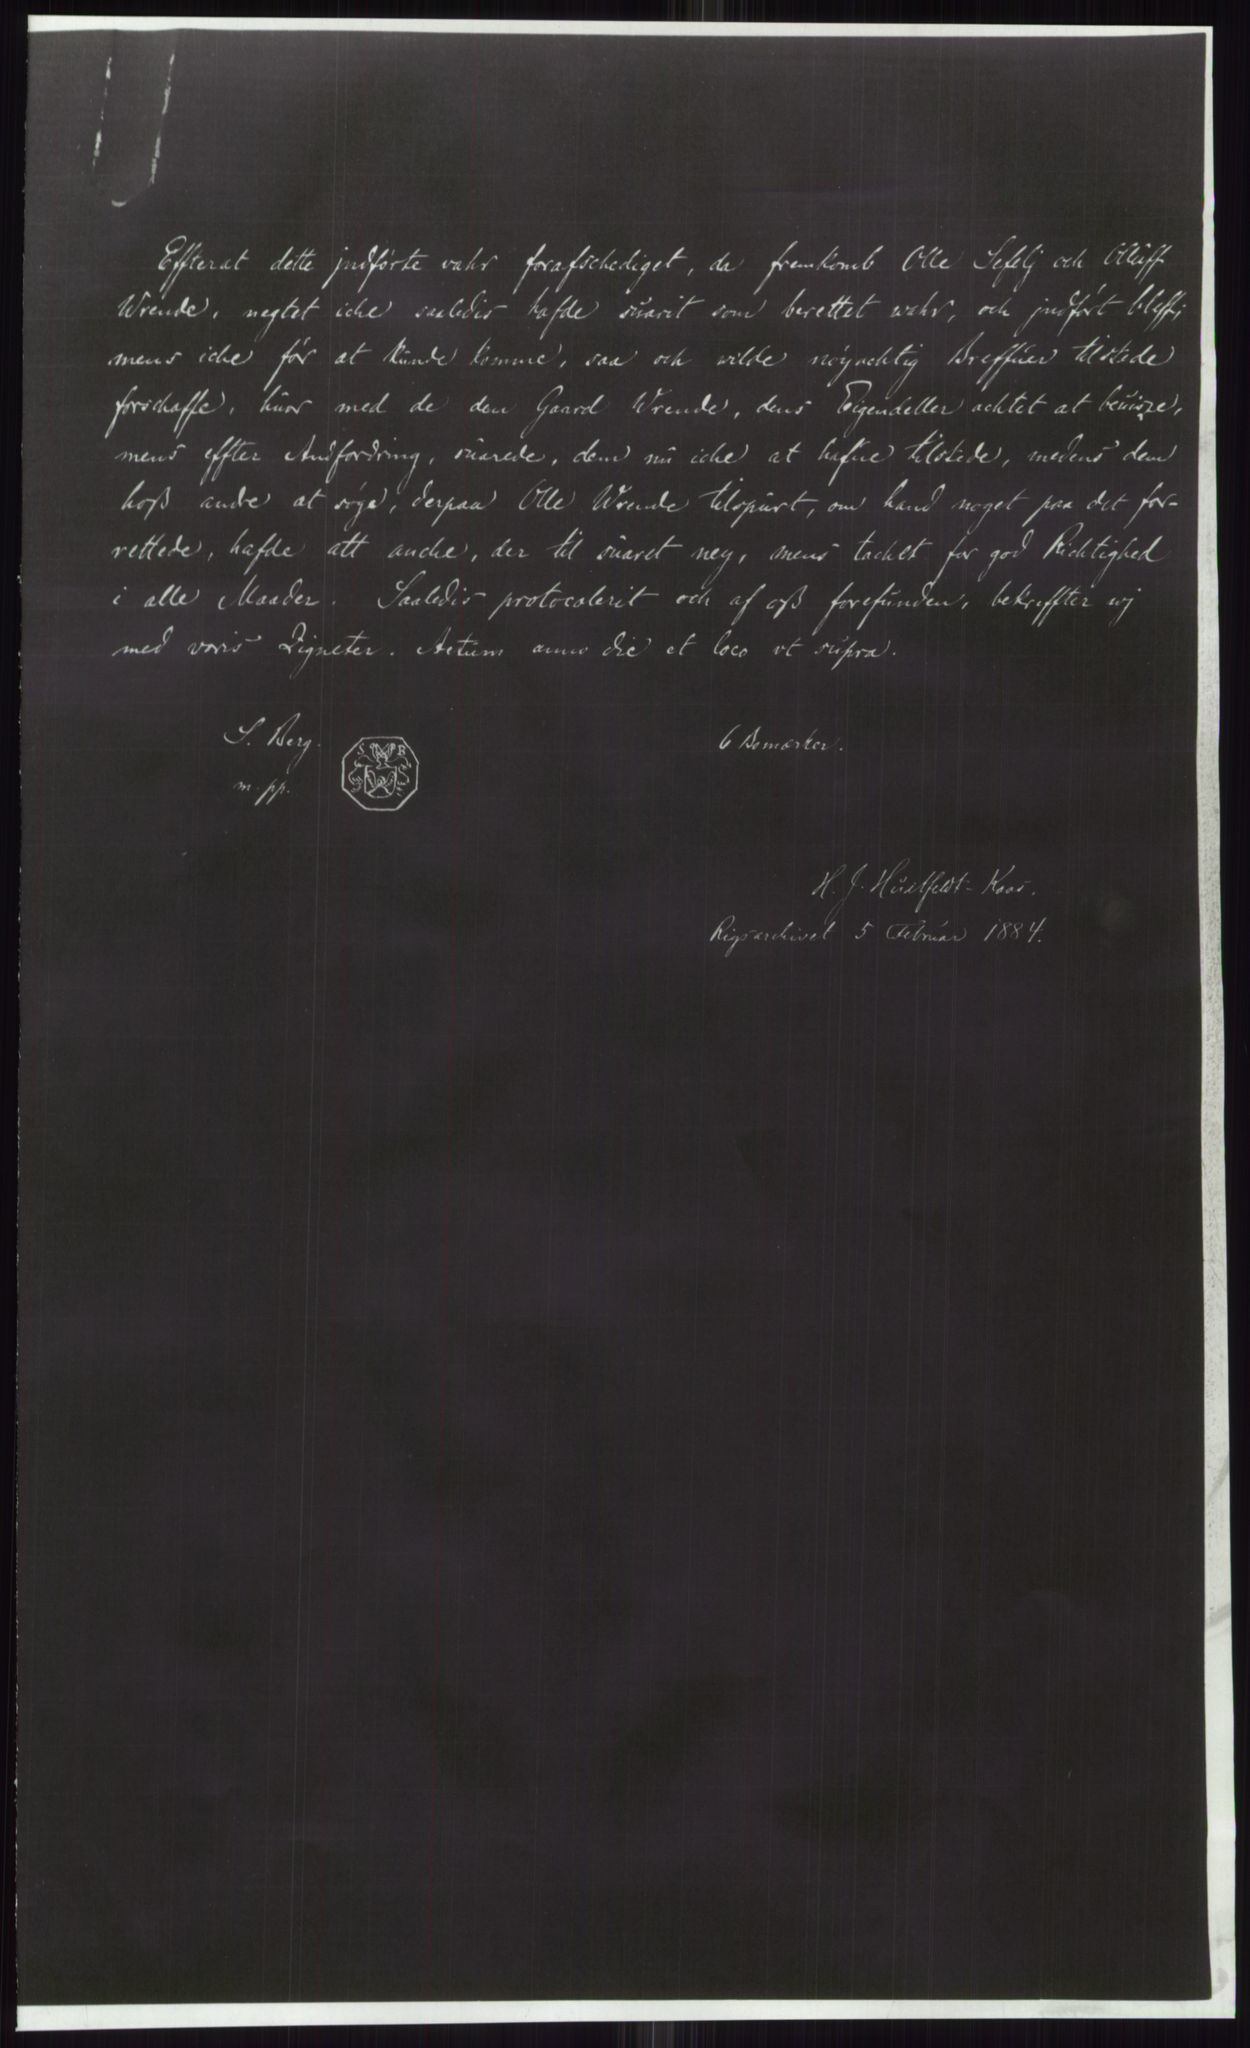 Effterat dette jndförte vahr forafschediget, da fremkomb Olle Sefelj och Olluff
Wrende, negtet iche saaledis hafde suarit som berettet wahr, och jndfört bleff;
mens iche för at kunde komme, saa och wilde nöyachtig Breffuer tilstede
forschaffe, huor med de den Gaard Wrende, dens Eigendeller achtet at beuisze,
mens effter Andfordring, suarede, dem nu iche at hafue tilstede, medens dem
hoß andre at söge, derpaa Olle Wrende tilspurt, om hand noget paa det for-
rettede, hafde att anche, der til suaret ney, mens tachet for god Richtighed
i alle Maader. Saaledis protocolerit och af oß forefunden, bekreffter wj
med voris Zigneter. Actum anno die et loco vt supra.
S. Berg.
m. pp.
S B
6 Bomærker.
H. J. Huitfeldt-Kaas.
Rigsarchivet 5 Februar 1884.